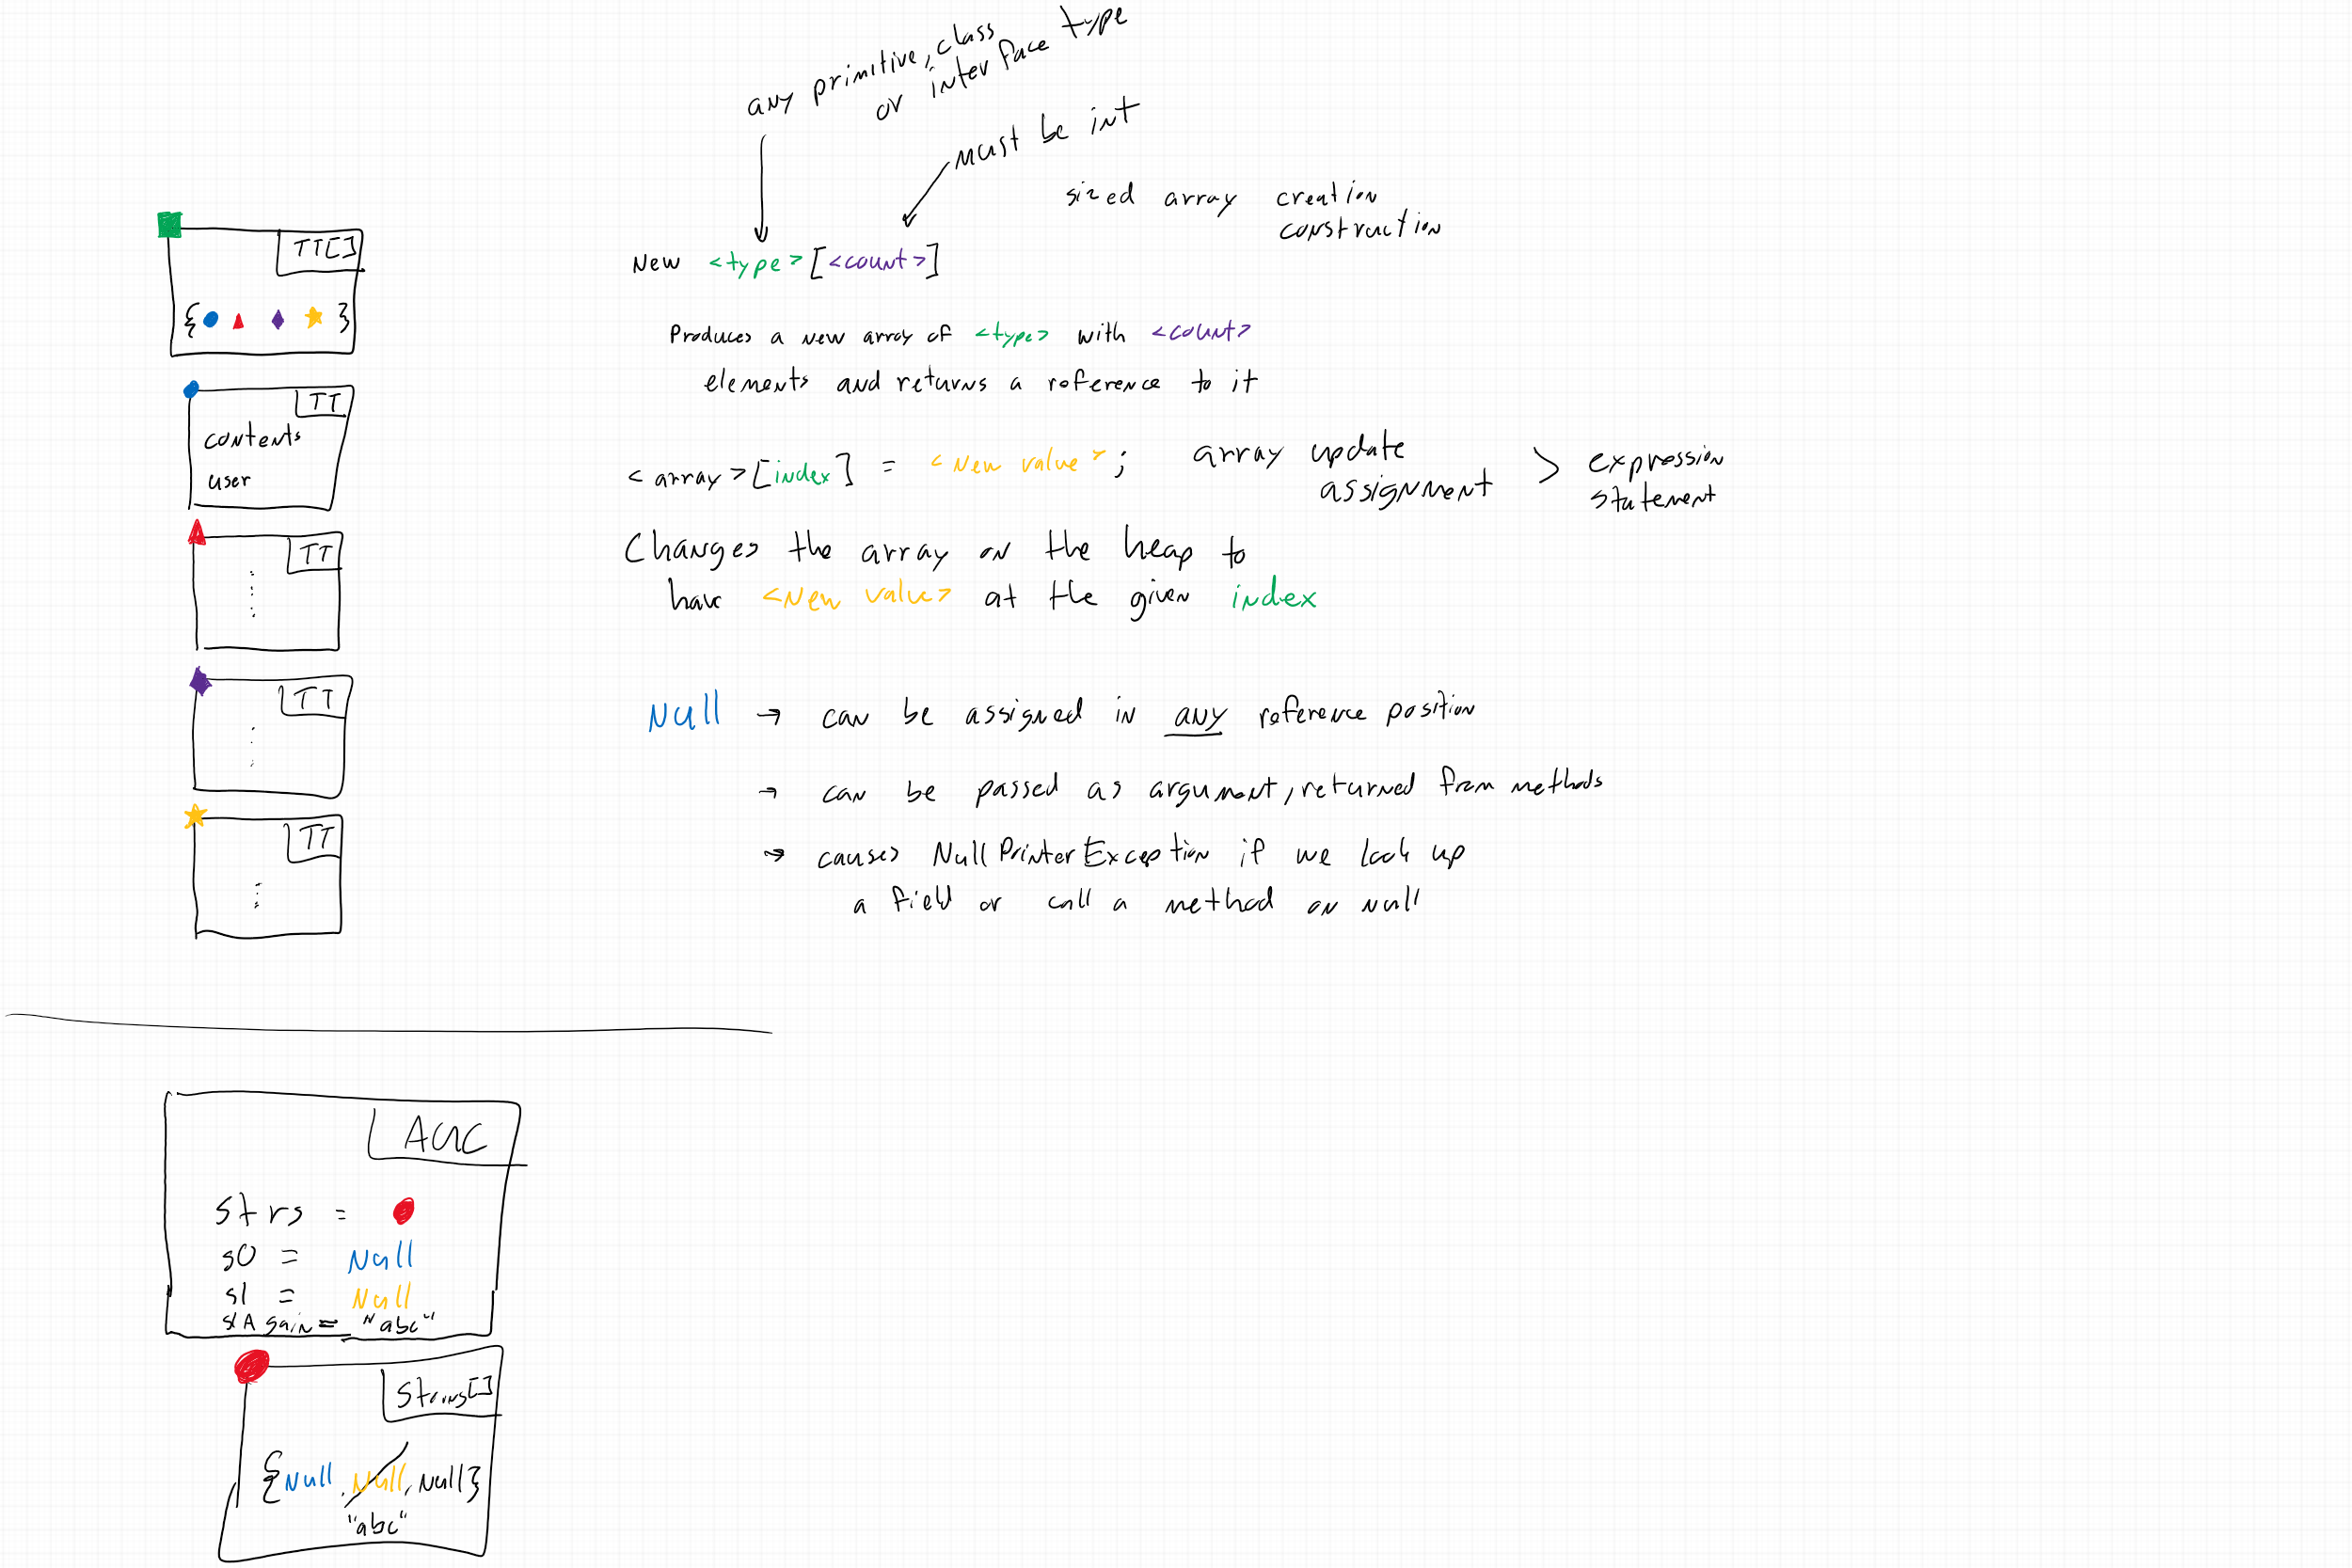 any primitive, class
or interface type
must be int
sized array creation
construction
New <type>[<count>]
Produces a new array of <type> with <count>
elements and returns a reference to it
<array>[index] = <New value>; array update
assignment > expression
statement
Changes the array on the heap to
have <New value> at the given index
Null → can be assigned in any reference position
→ can be passed as argument, returned from methods
→ causes NullPointerException if we look up
a field or call a method on null
TT[]
{ }
TT
contents
user
TT
TT
TT
AUC
strs =
s0 = Null
s1 = Null
s1Again = "abc"
String[]
{Null, Null, Null}
"abc"